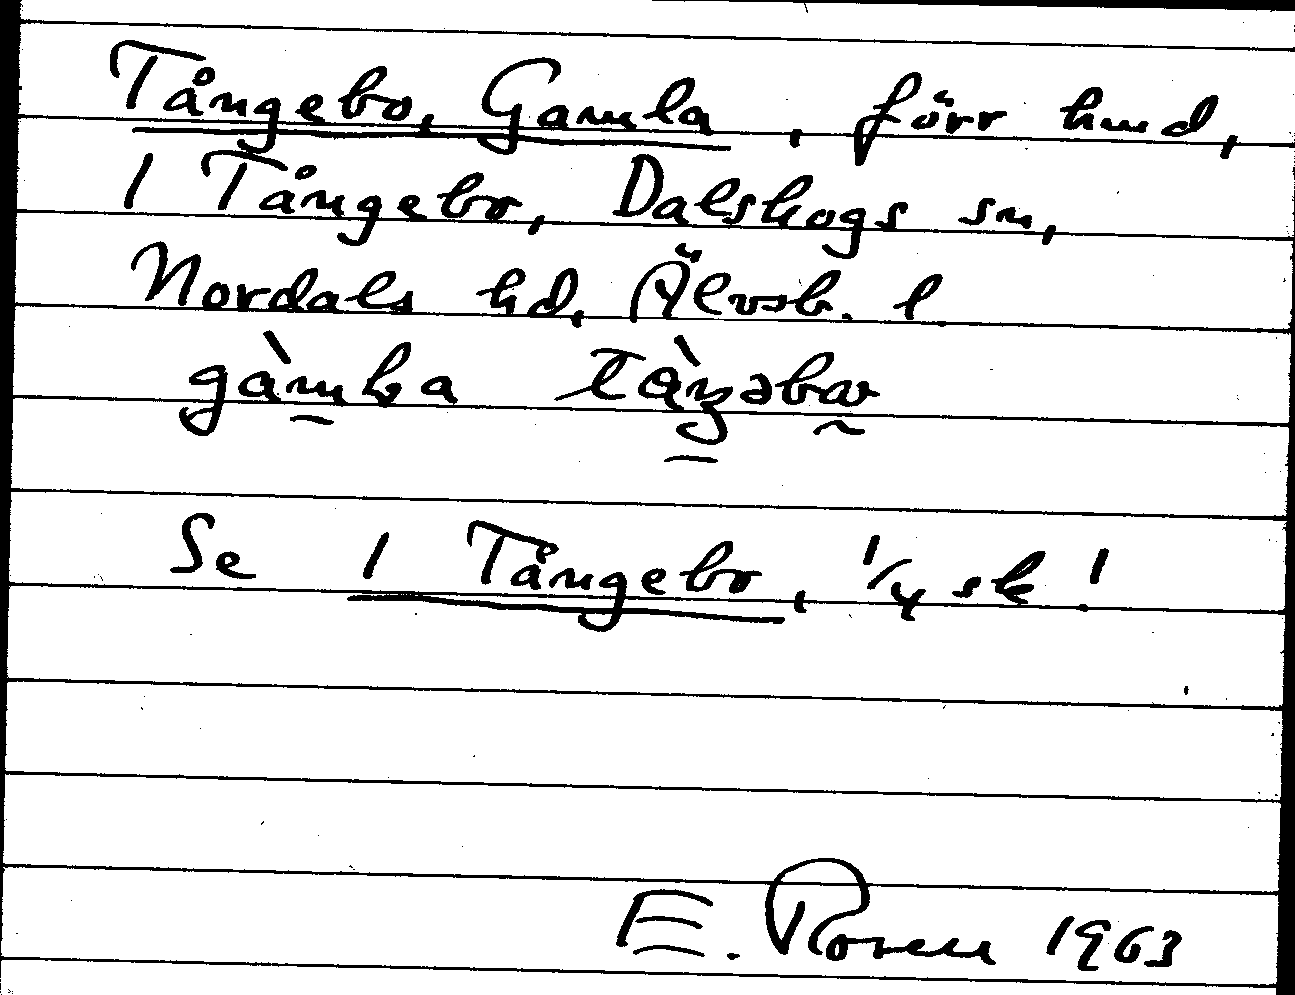 Tångebo, Gamla, förr hmd,
1 Tångebo, Dalskogs sn,
Nordals hd, Älvsb. l
Se 1 Tångebo, 1/4 sk!
E. Rosen 1963